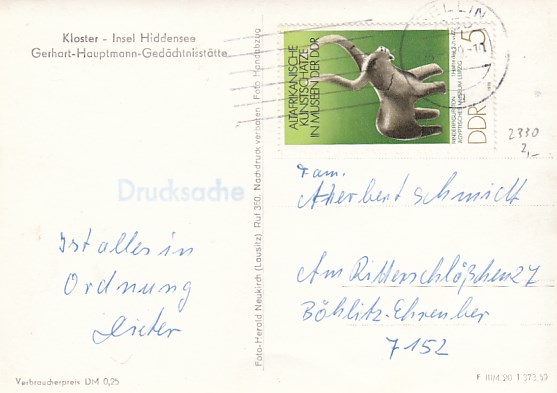 Kloster - Insel Hiddensee
Gerhart-Hauptmann-Gedächtnisstätte
Drucksache
Ist alles in
Ordnung
Dieter
Verbraucherpreis DM 0,25
Foto-Herald Neukirch (Lausitz) Ruf 350. Nachdruck verboten. Foto Handabzug
ALTAFRIKANISCHE
KUNSTSCHÄTZE
IN MUSEEN DER DDR
RINDERFIGUR
ÄGYPTISCHES MUSEUM LEIPZIG
DDR 5
LLIN
2330
2,-
Fam.
Herbert Schmidt
Am Ritterschlößchen 27
Böhlitz-Ehrenber
7152
F